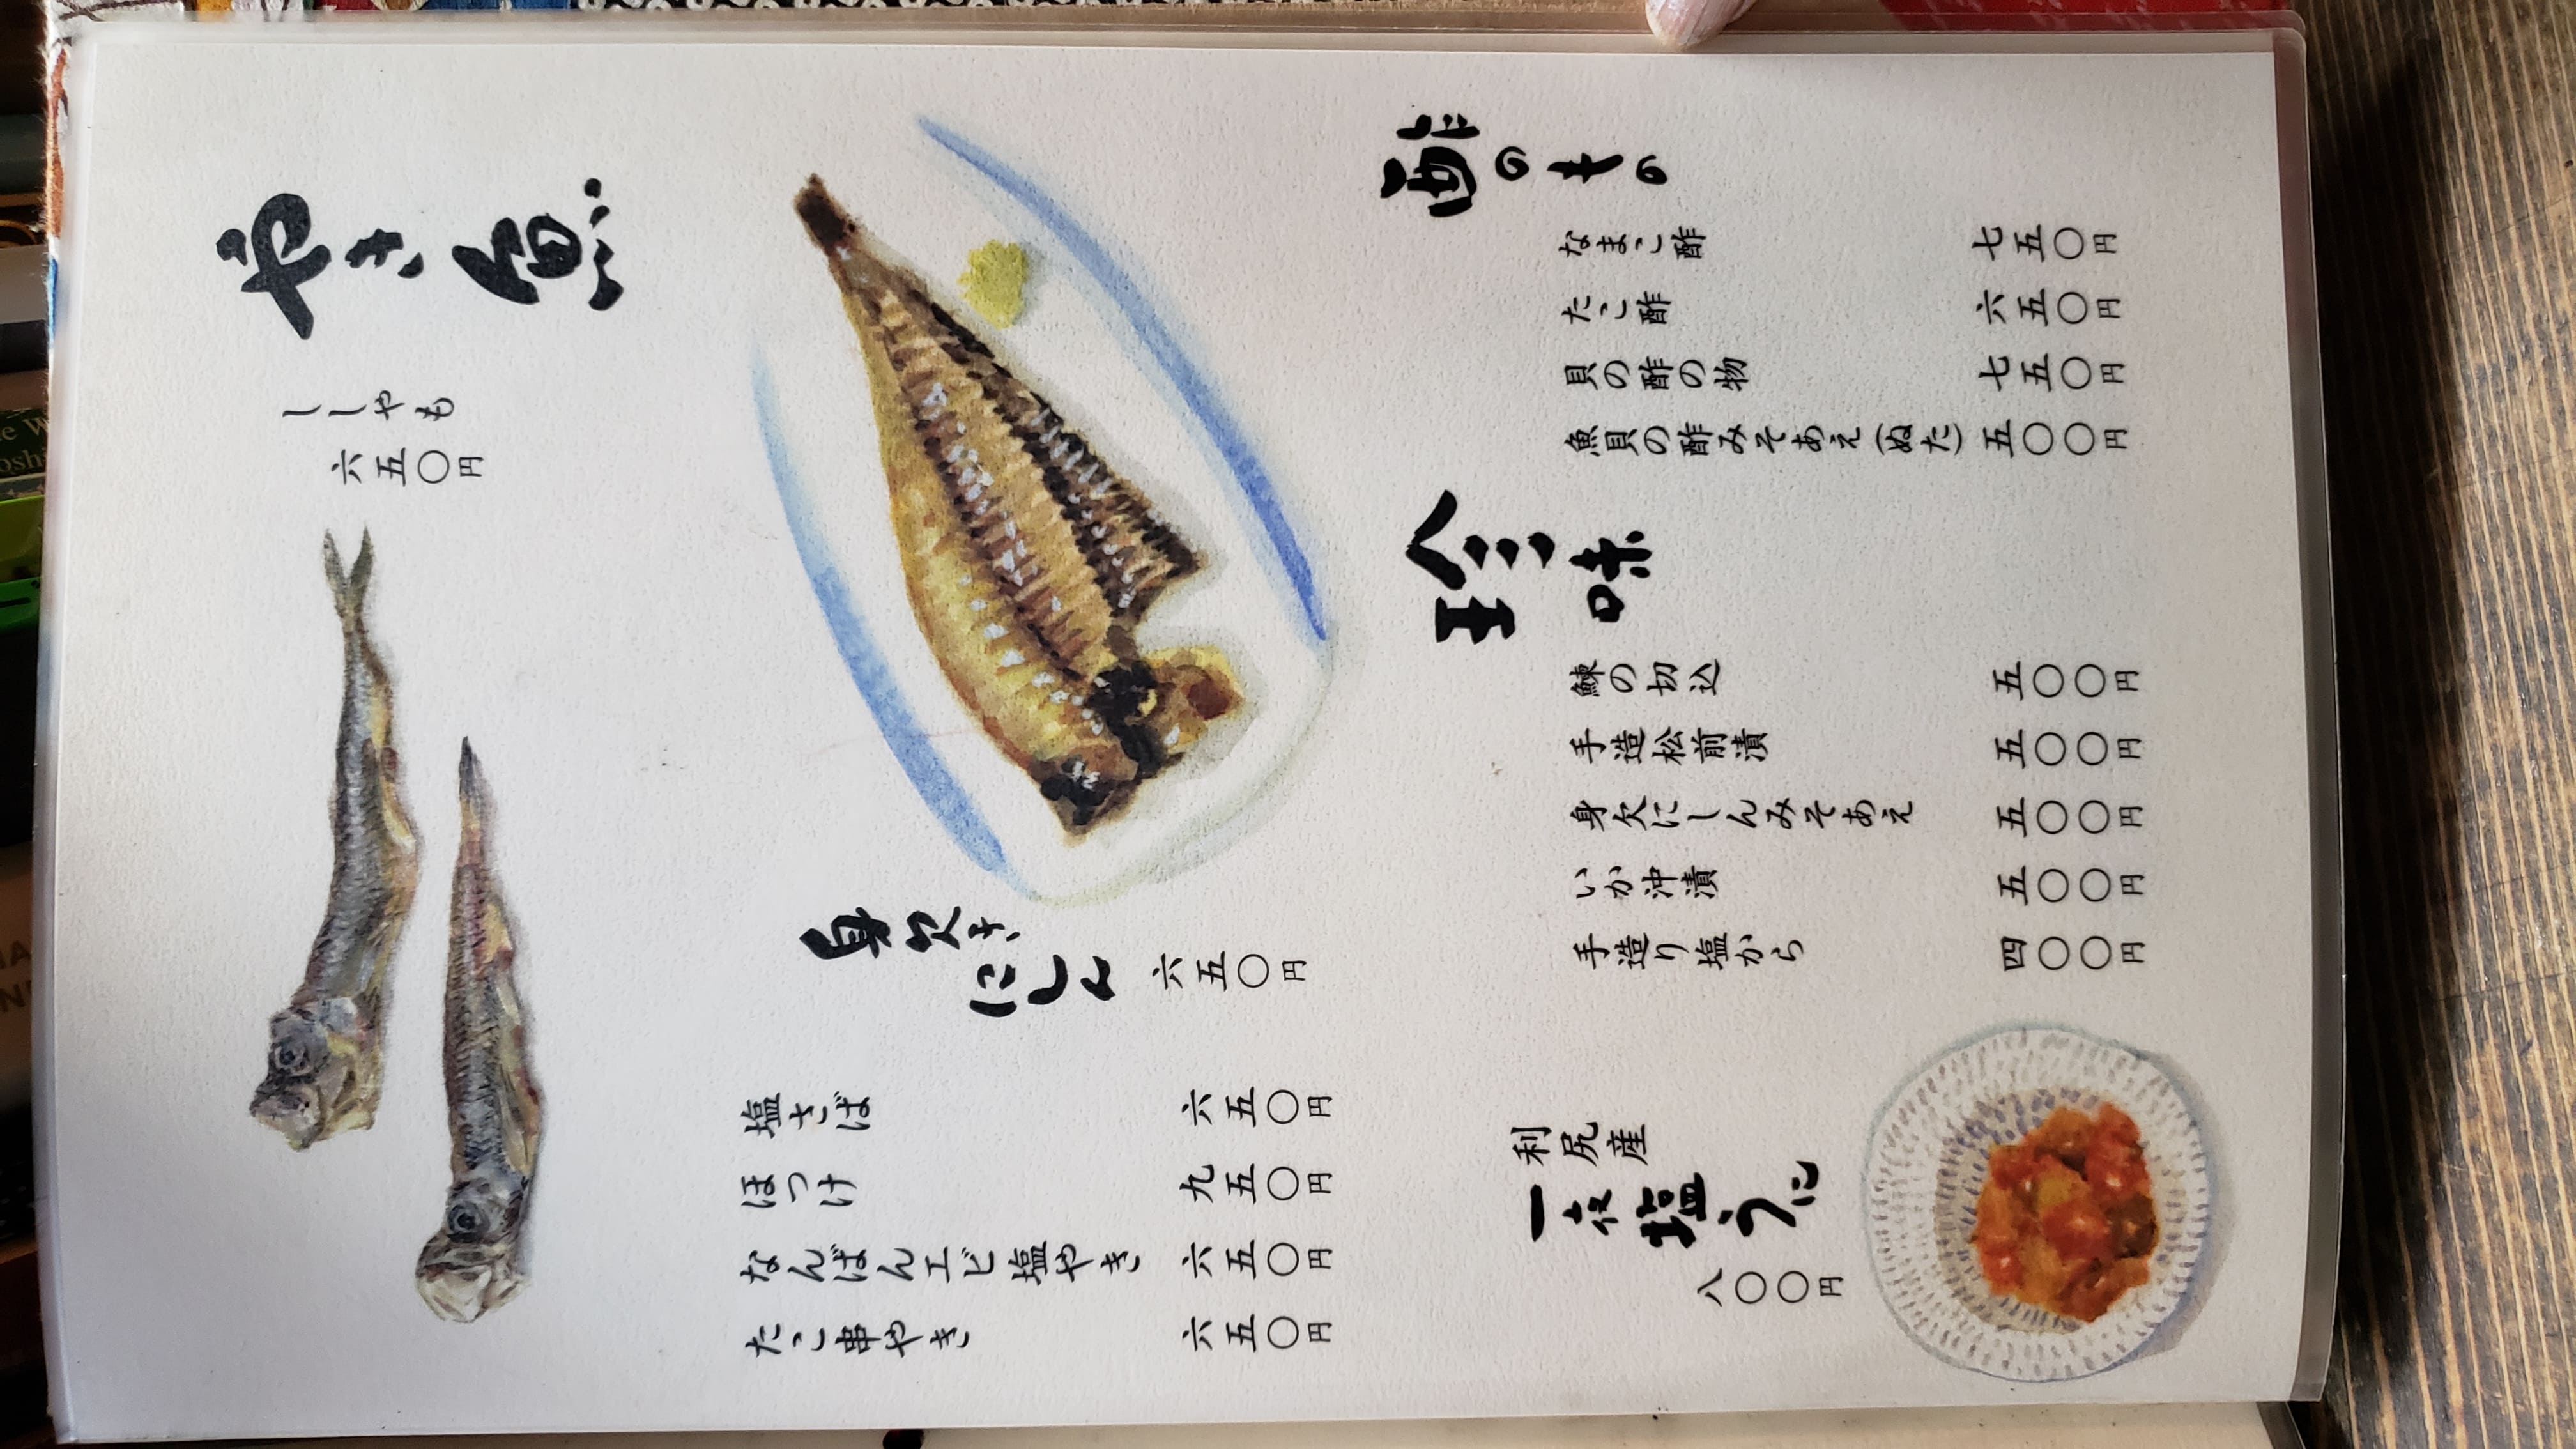 やき魚
ししやも
六五〇円
身欠き
にしん 六五〇円
塩さば 六五〇円
ほつけ 九五〇円
なんばんエビ塩やき 六五〇円
たこ串やき 六五〇円
酢のもの
なまこ酢 七五〇円
たこ酢 六五〇円
貝の酢の物 七五〇円
魚貝の酢みそあえ(ぬた) 五〇〇円
珍味
鰊の切込 五〇〇円
手造松前漬 五〇〇円
身欠にしんみそあえ 五〇〇円
いか沖漬 五〇〇円
手造り塩から 四〇〇円
利尻産
一夜塩うに
八〇〇円